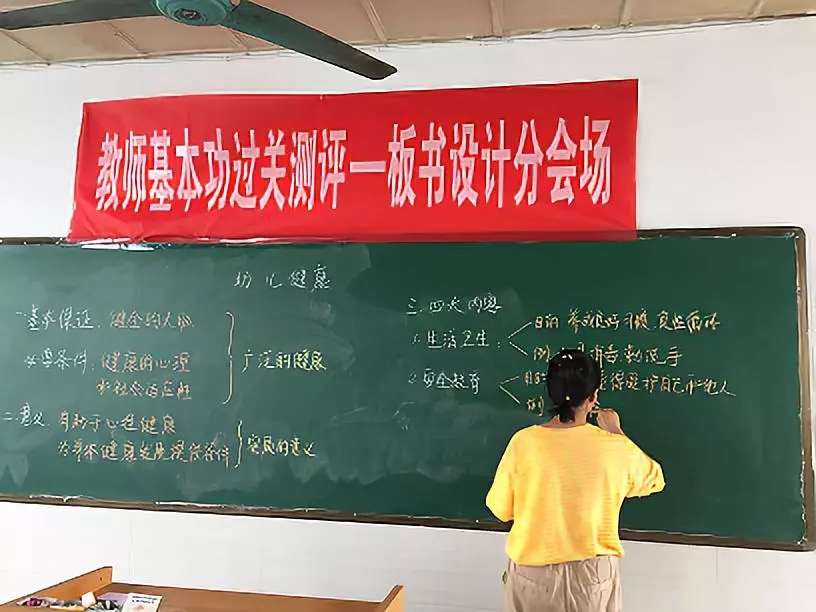 教师基本功过关测评一板书设计分会场
幼儿健康
一基本保证：健全的人
必要条件：健康的心理
和社会适应
广泛的健康
二、意义 有助于心理健康
为整体健康发展提供条件
实民的意义
三、四大内容
1. 生活卫生：
目的 养成良好习惯,
例
勤洗手
2. 安全教育
得爱护自己和他人
例